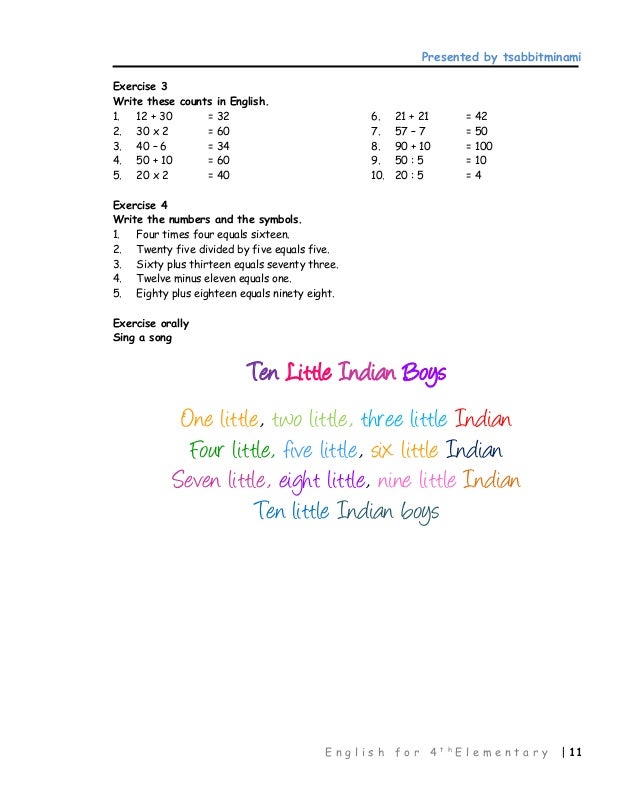 Presented by tsabbitminami
Exercise 3
Write these counts in English.
1. 12 + 30 = 32
2. 30 x 2 = 60
3. 40 – 6 = 34
4. 50 + 10 = 60
5. 20 x 2 = 40
6. 21 + 21 = 42
7. 57 – 7 = 50
8. 90 + 10 = 100
9. 50 : 5 = 10
10. 20 : 5 = 4
Exercise 4
Write the numbers and the symbols.
1. Four times four equals sixteen.
2. Twenty five divided by five equals five.
3. Sixty plus thirteen equals seventy three.
4. Twelve minus eleven equals one.
5. Eighty plus eighteen equals ninety eight.
Exercise orally
Sing a song
Ten Little Indian Boys
One little, two little, three little Indian
Four little, five little, six little Indian
Seven little, eight little, nine little Indian
Ten little Indian boys
English for 4th Elementary | 11